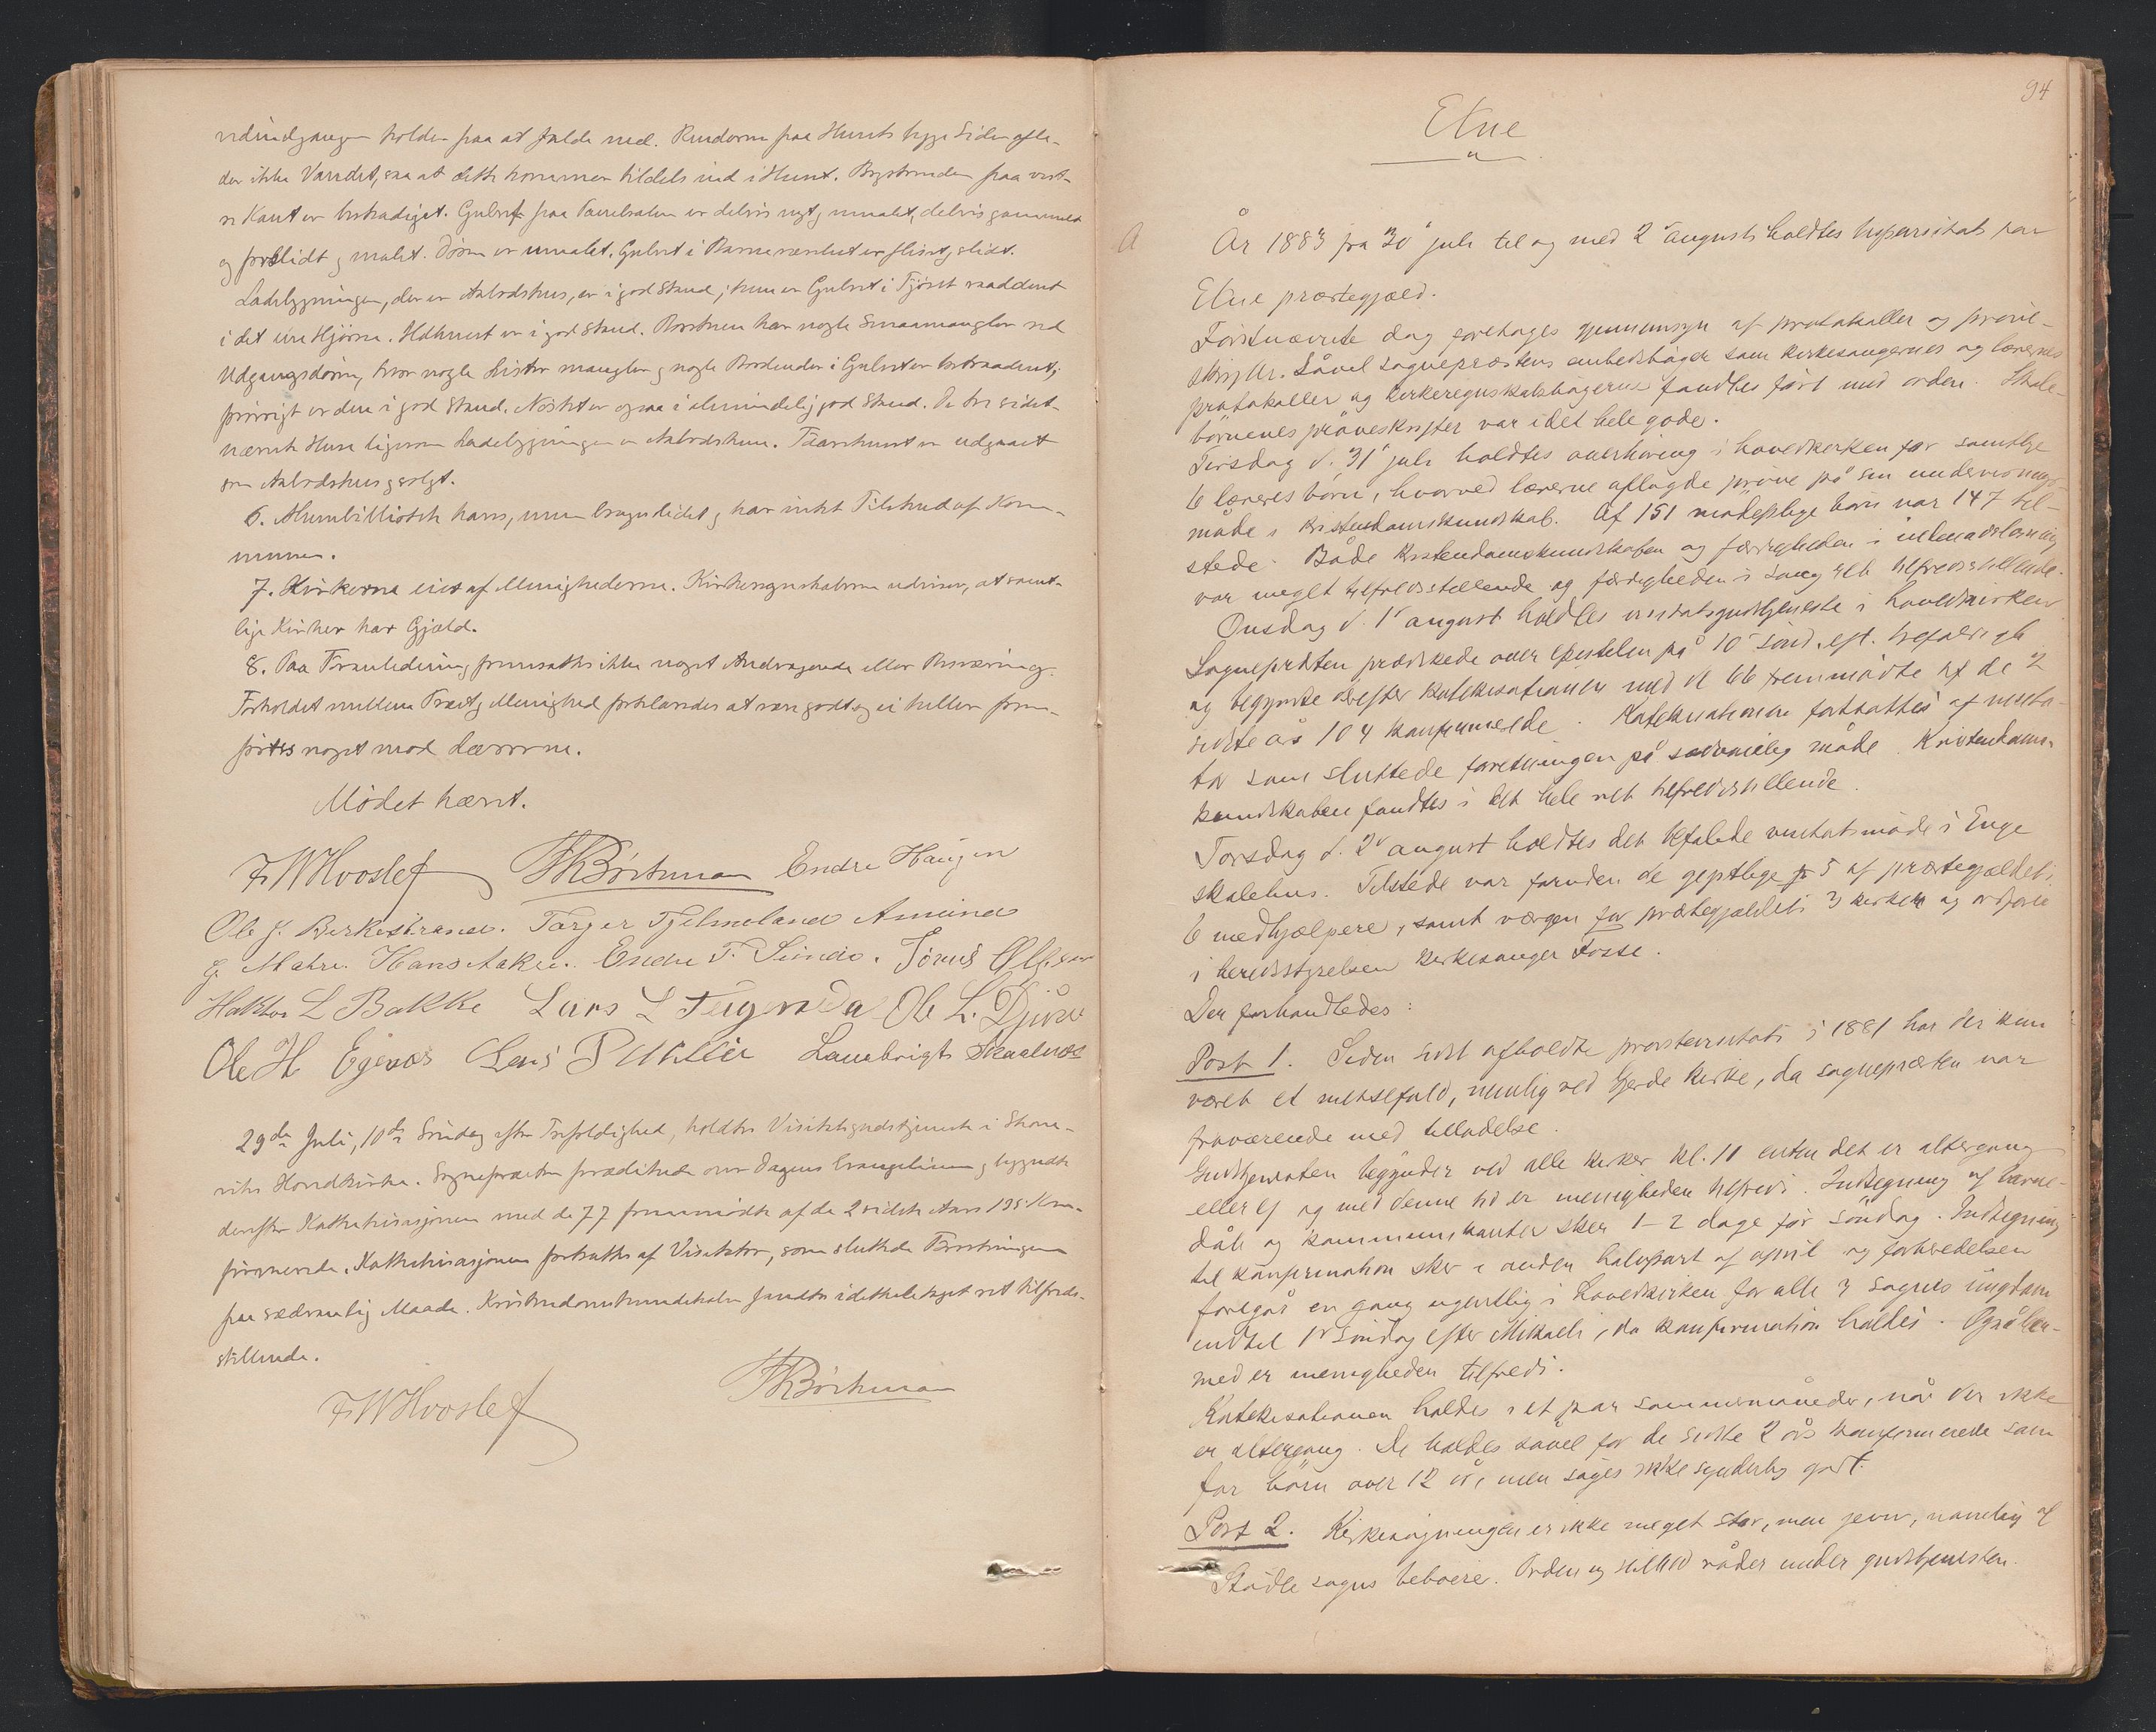 vedindgangen holder paa at falde ned. Renderne paa Husets begge Sider afle-
der ikke Vandet, saa at dette kommer tildels ind i Huset. Brystvænden paa vest-
re Kant er beskadiget. Gulvet paa er delvis nyt, umalet, delvis gammelt
og forslidt og malet. Døren er umalet. Gulvet i er fliset, slidt.
Ladebygningen, der er Aabodshus, er i god Stand; kun er Gulvet i Fjøset raaddent
i det ene Hjørne. Ildhuset er i god Stand. Borstuen har nogle Smaamangler ved
Udgangsdøren, hvor nogle Lister mangler og nogle Bordender i Gulvet er
forøvrigt er den i god Stand. Nøstet er ogsaa i almindelig god Stand. De tre sidst-
nævnte Huse ligesom Ladebygningen er Aabodshuse. er udgaaet
som Aabodshus og solgt.
6. Almuebibliothek haves, men bruges lidet og har intet Tilskud af Kom-
munen.
7. Kirkerne eies af Menighederne. Kirkeregnskaberne udviser, at samt-
lige Kirker har Gjæld.
8. Paa Foranledning fremsattes ikke noget Andragende eller Besværing.
Forholdet mellem Præst og Menighed forklaredes at være godt og ei heller frem-
førtes noget mod Lærerne.
Mødet hævet.
F W Hvoslef Børkman Endre Haugen
Ole J. Berkestrand. Torger Tjelmeland Amund
J. Matre. Hans Aaker. Endre T. Sunde. Jonas Olsen
Haktor L Bakke Lars L Teigna Ole L. Djuve
Ole H Egenes Lars P Lambrigt Skaalnes
29de Juli, 10de Søndag efter Trefoldighed, holdtes Visitatsgudstjeneste i Skone-
viks Hovedkirke. Sognepræsten prædikede over Dagens Evangelium og begyndte
derefter Kathekisasjonen med de 77 fremmødte af de 2 sidste Aars 195 Kon-
firmerede. Kathekisasjonen fortsattes af Visitator, som sluttede Forretningen
paa sædvanlig Maade. Kristendomskundskaben fandtes i det hele taget ret tilfreds-
stillende.
F W Hvoslef Børkman
94
Etne
A År 1883 fra 30 juli til og med 2 august holdtes bispevisitats for
Etne præstegjæld.
Førstnævnte dag foretoges gjennemsyn af protokoller og prøve-
skrifter. Såvel sognepræstens embedsbøger som kirkesangernes og lærernes
protokoller og kirkeregnskabsbøgerne fandtes ført med orden. Skole-
børnenes prøveskrifter var i det hele gode.
Tirsdag d. 31 juli holdtes overhøring i hovedkirken for samtlige
6 læreres børn, hvorved lærerne aflagde prøve på sin undervisnings-
måde i kristendomskundskab. Af 151 mødepligtige børn var 147 til-
stede. Både kristendomskundskaben og færdigheden i indenadslæsning
var meget tilfredsstillende og færdigheden i sang ret tilfredsstillende.
Onsdag d. 1 august holdtes visitatsgudstjeneste i hovedkirken
Sognepræsten prædikede over epistelen på 10 sønd. eft. trefoldigh
og begyndte derefter katekisationen med de 66 fremmødte af de 2
sidste års 104 konfirmerede. Katekisationen fortsattes af visita-
tor som sluttede forretningen på sædvanlig måde. Kristendoms-
kundskaben fandtes i det hele ret tilfredsstillende.
Torsdag d. 2 august holdtes det befalede visitatsmøde i Enge
skolehus. Tilstede var foruden de geistlige 5 af præstegjældets
6 medhjælpere, samt værgen for præstegjældets 3 kirker og ordføre
i herredsstyrelsen kirkesanger Fosse.
Der forhandledes:
Post 1. Siden sidst afholdte provstevisitats i 1881 har der kun
været et messefald, nemlig ved Gjerde kirke, da sognepræsten var
fraværende med tilladelse.
Gudstjenesten begynder ved alle kirker kl. 11 enten det er altergang
eller ej og med denne tid er menigheden tilfreds. Indtegning af barne-
dåb og kommunikanter sker 1-2 dage før søndag. Indtegning
til konfirmation sker i anden halvpart af april og forberedelsen
foregår en gang ugentlig i hovedkirken for alle 3 sognes ungdom
indtil 1 søndag efter Mikaeli, da konfirmation holdes. Også her-
med er menigheden tilfreds.
Katekisationen holdes i et par sommermåneder, når der ikke
er altergang. De holdes såvel for de sidste 2 års konfirmerede som
for børn over 12 år, men søges ikke synderlig godt.
Post 2. Kirkesøgningen er ikke meget stor, men jevn, navnlig af
Stødle sogns beboere. Orden og stilhed råder under gudstjenesten.